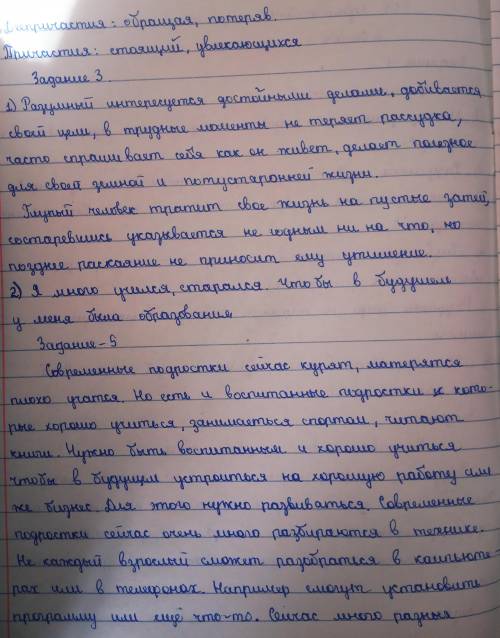 Деепричастия: обращая, потеряв.
Причастия: стоящий, увлекающихся
Задание 3.
1) Разумный интересуется достойными делами, добивается
своей цели, в трудные моменты не теряет рассудка,
часто спрашивает себя как он живет, делает полезное
для своей земной и потустаронней жизни.
Глупый человек тратит свое жизнь на пустые затеи,
состаревшись указывается не годным ни на что, но
позднее раскаяние не приносит ему утишение.
2) Я много учился, старался. Чтобы в будушем
у меня была образование
Задание - 5
Современные подростки сейчас курят, матерятся
плохо учатся. Но есть и воспитанные подростки к кото-
рые хорошо учиться, занимаеться спортом, читают
книги. Нужно быть воспитанным и хорошо учиться
чтобы в будущем устроиться на хорошую работу или
же бизнес. Для этого нужно развиваться. Современные
подростки сейчас очень много разбираются в технике.
Не каждый взрослый сможет разобраться в кампьюте-
рах или в телефонах. Например смогут установить
программу или ещё что-то. Сейчас много разных